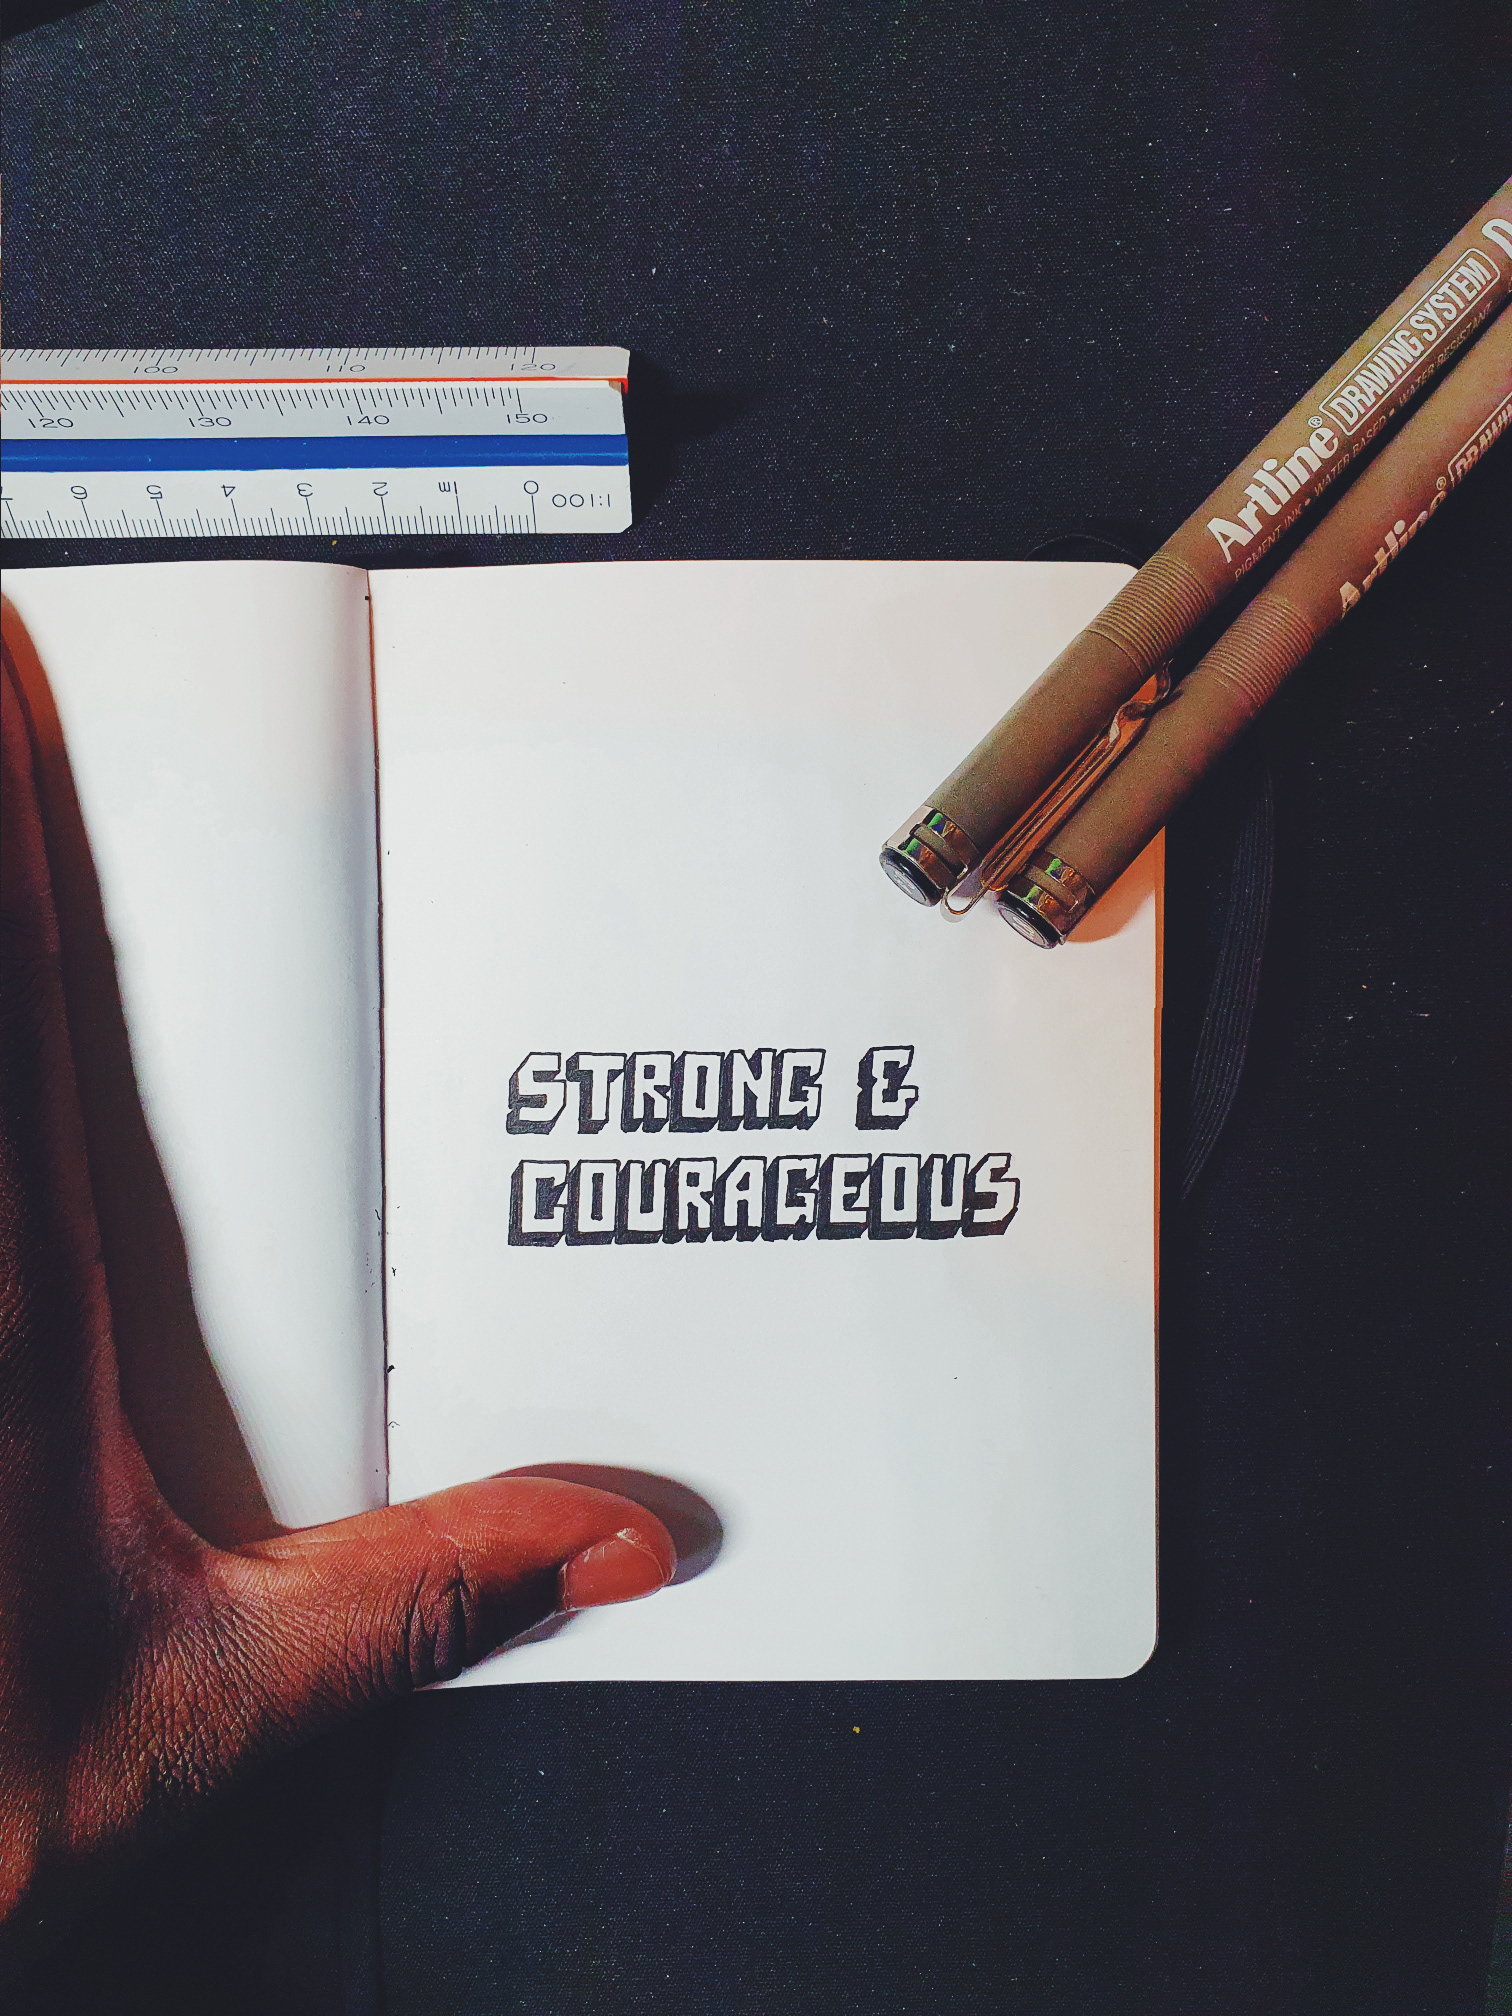 100 110 120
120 130 140 150
7 6 5 4 3 2 1m 0 1:100
Artline® DRAWING SYSTEM
PIGMENT INK • WATER BASED • WATER RESISTANT
Artline®
STRONG &
COURAGEOUS